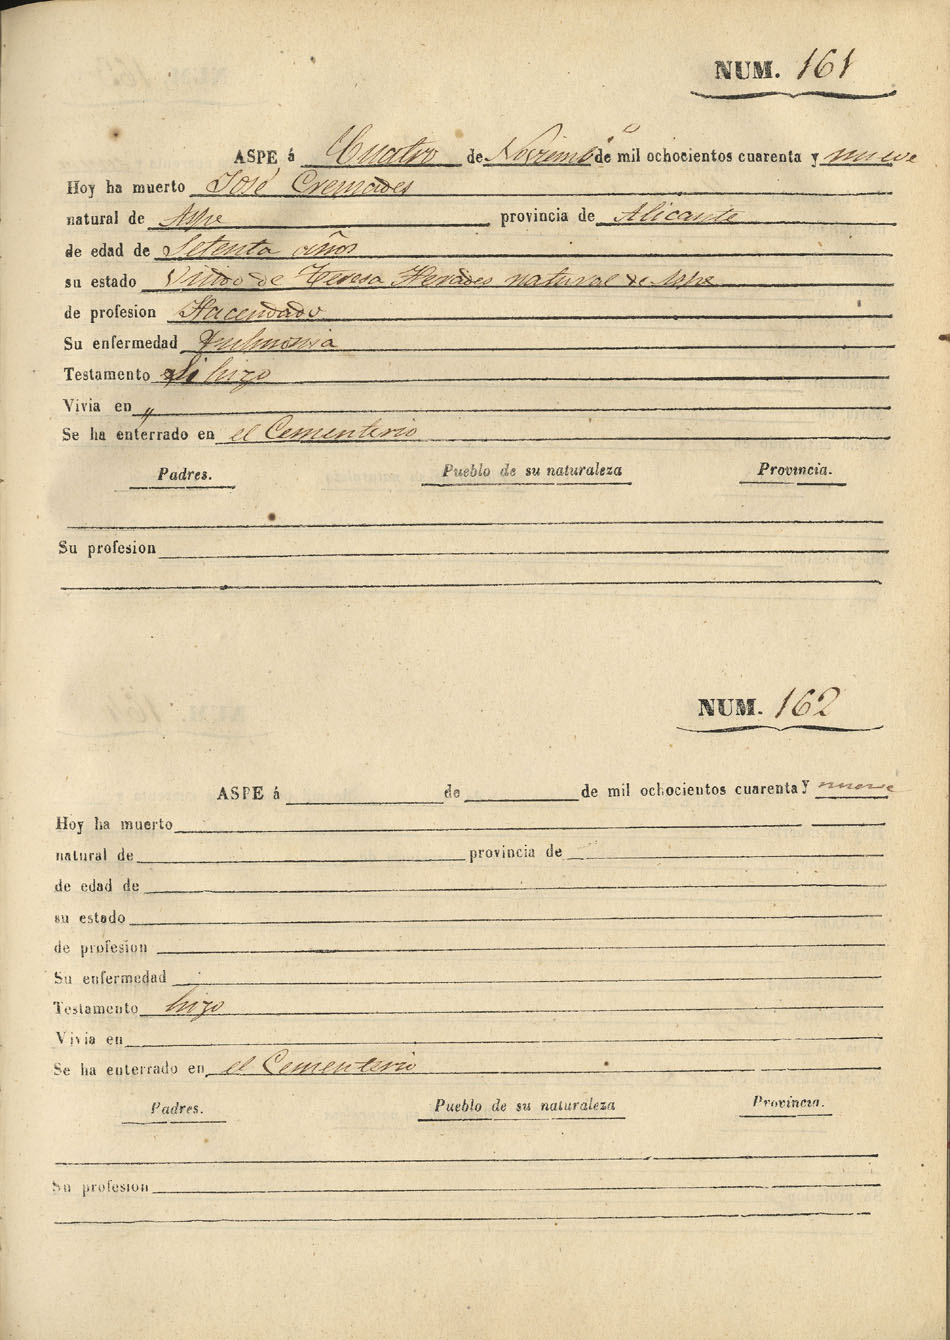 NUM. 161
ASPE á Cuatro de Noviembe de mil ochocientos cuarenta y nueve
Hoy ha muerto José Cremades
natural de Aspe provincia de Alicante
de edad de Setenta años
su estado Viudo de Teresa natural de Aspe
de profesion Hacendado
Su enfermedad Pulmonia
Testamento Si hizo
Vivia en "
Se ha enterrado en el Cementerio
Padres. Pueblo de su naturaleza Provincia.
Su profesion
NUM. 162
ASPE á de de mil ochocientos cuarenta y nueve
Hoy ha muerto
natural de provincia de
de edad de
su estado
de profesion
Su enfermedad
Testamento hizo
Vivia en
Se ha enterrado en el Cementerio
Padres. Pueblo de su naturaleza Provincia.
Su profesion